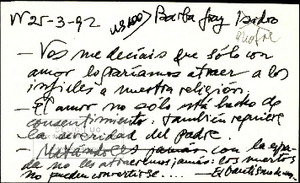 N 25-3-92 Barba fray Isidro
- Vos me decíais que sólo con
amor lograríamos atraer a los
infieles a nuestra religión.
- El amor no sólo está hecho de
consentimiento. también requiere
la severidad del padre.
- Matándolos jamás con la espa-
da no les atraeremos jamás: los muertos
no pueden convertirse....
- El bautismo